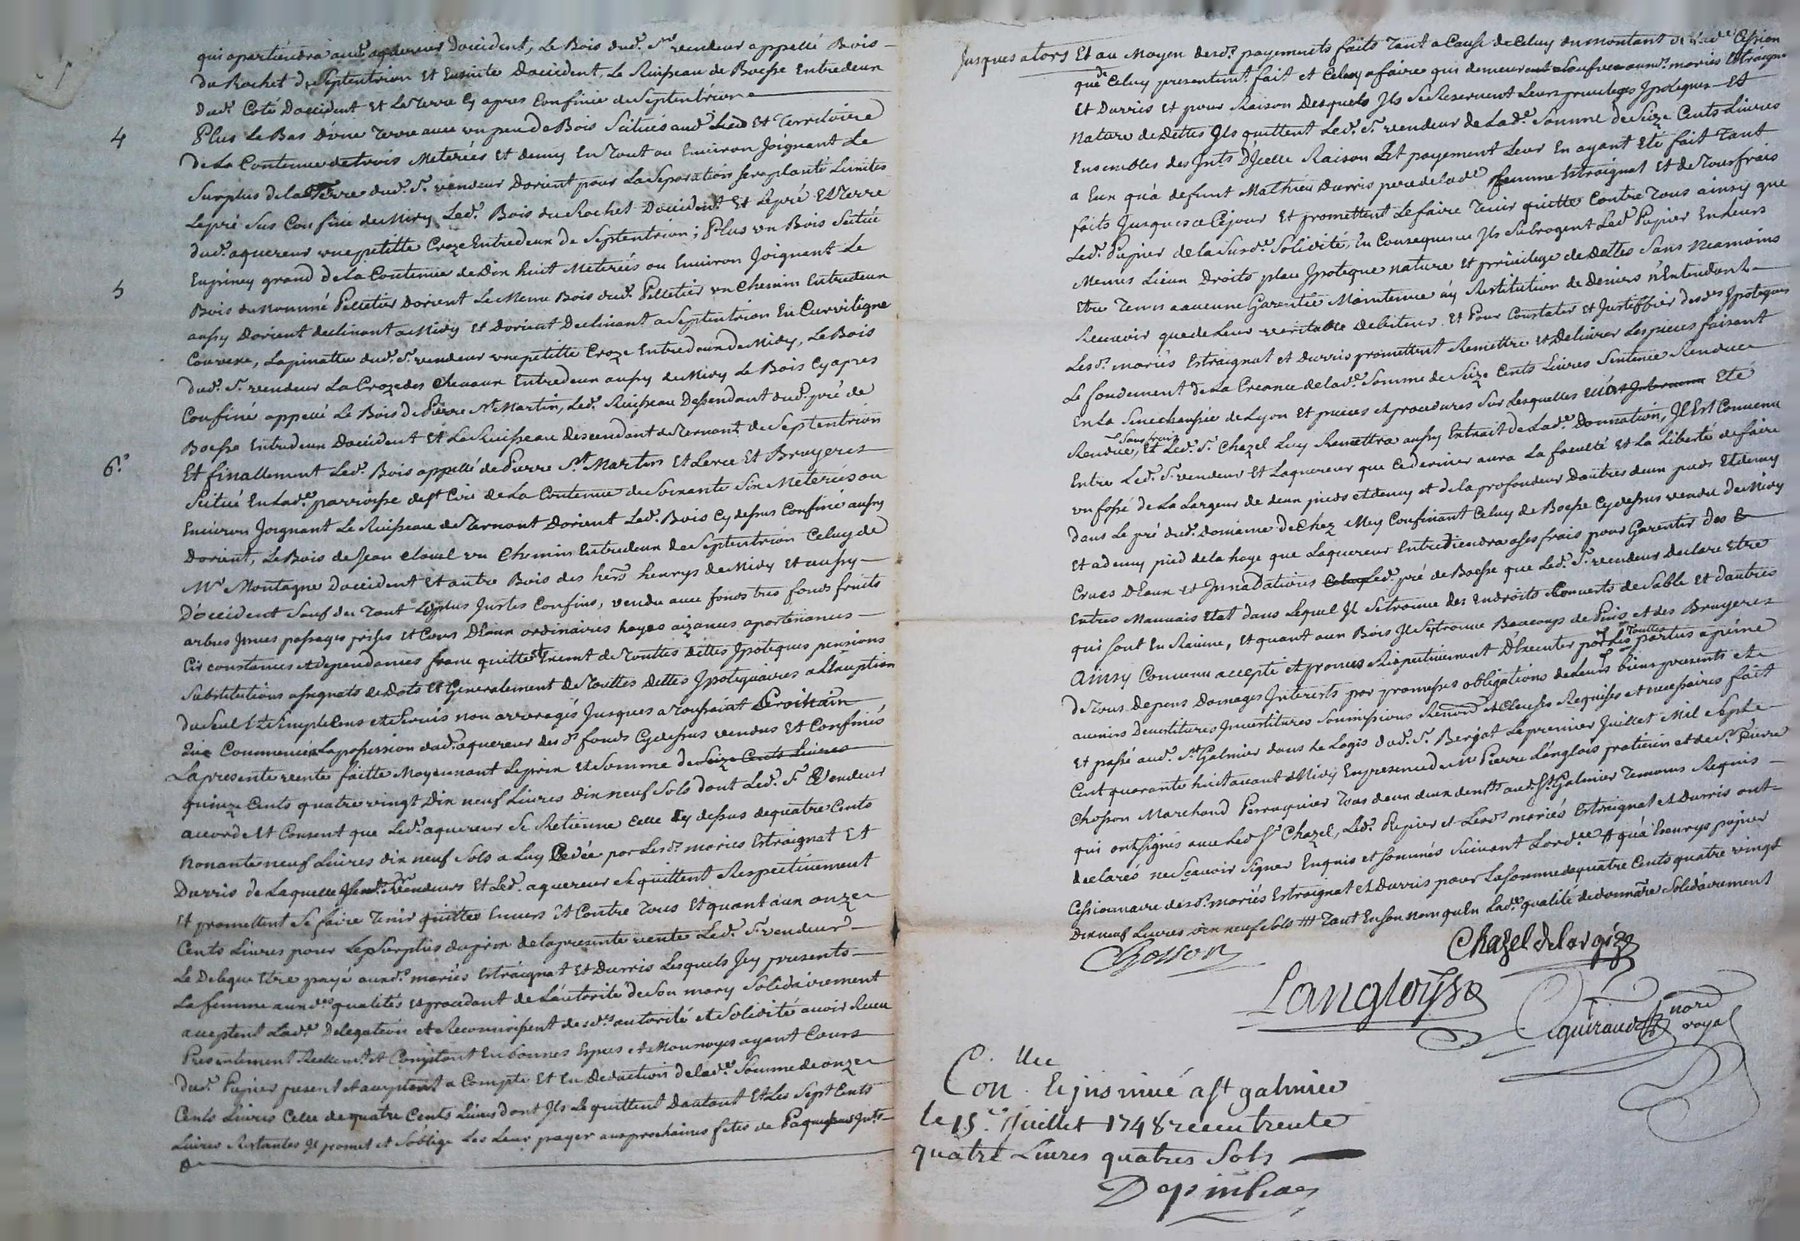 qui apartiendra aud. aquereur Doccident, Le Bois dud. Sr. vendeur appellé Bois
du Rochet de Septentrion et Ensuite Doccident, Le Ruisseau de Boesse Entredeux
dud. Coté Doccident et La Terre Cy apres Confinée de Septentrion
4 Plus Le Bas Dune Terre avec un peu de Bois Scitués aud. Lieu et Territoire
de La Contenue de trois Meterées et demy En Tout ou Environ Joignant Le
Surplus de la Terre dud. Sr. vendeur Dorient pour La Separation sera planté Limites
Le pré Sus Confiné de Midy Led. Bois du Rochet Doccident Et Le pré Et Terre
dud. aquereur une petitte Croze Entredeux de Septentrion ; Plus un Bois Scitué
5 Enpiney grand de La Contenue de Dix huit Meterées ou Environ Joignant Le
Bois du Nommé Pelletier Dorient Le Meme Bois dud. Pelletier un Chemin Entredeux
aussy Dorient declinant a Midy Et Dorient Declinant a Septentrion En Curviligne
Couvexe, La pinatte dud. Sr. vendeur une petitte Croze Entredeux de Midy, Le Bois
dud. Sr. vendeur La Croze des Chevaux Entredeux aussy de Midy Le Bois Cy apres
Confiné appellé Le Bois de Pierre St. Martin, Led. Ruisseau Dessendant dud. pré de
Boesse Entredeux Doccident et Le Ruisseau descendant de Ternant de Septentrion
6.o Et finallement Led. Bois appellé de Pierre St. Martin Et Terre Et Bruyeres
Scitué En Lad. parroisse de St. Cire de La Contenue de Soixante Six Meterées ou
Environ Joignant Le Ruisseau de Ternant Dorient Led. Bois Cy dessus Confiné aussy
Dorient, Le Bois de Jean Clavel un Chemin Entredeux de Septentrion Celuy de
Mr. Montagne Doccident Et autre Bois des hers. henrys de Midy Et aussy
Doccident Sauf du Tout Les plus Justes Confins, vendu avec fonds tres fonds fruits
arbres passages prises et Cours DEaux ordinaires hayes aizances apartenances
Circonstances et dependances franc quitte Et Exempt de Touttes dettes Ypoteques pensions
Substitutions assignats de Dots Et Generalement de Touttes dettes Ypotequaires alExeption
du Seul Et Simple Cens et Servis non arreragés Jusques a Toussaint Prochain
que Commencera La possession dud. aquereur des ds. fonds Cy dessus vendus Et Confinés
La presente vente faitte Moyennant Le prix et Somme de Seize Cents Livres
quinze Cents quatre vingt Dix neuf Livres dix neuf Sols dont Led. Sr. Vendeur
accorde Et Consent que Led. aquereur Se Retienne Celle Cy dessus de quatre Cents
Nonante neuf Livres dix neuf Sols a Luy Cedée par Lesd. mariés Estraignat Et
Durris de Laquelle vendeurs Et Led. aquereur s'en quittent Respectivement
Et promettent Se faire Tenir quitte Envers Et Contre Tous Et quant aux onze
Cents Livres pour Le Surplus du prix de La presente vente Led. Sr. vendeur
Le Delegue Etre payé auxd. mariés Estraignat Et Durris Lesquels Icy presents
La femme auxd. qualités et procedant de L'autorité de Son mary Solidairement
acceptent Lad. Delegation et Reconnoissent desd. autorité et Solidité avoir Receu
Presentement Reellemt. Et Comptant En bonnes Especes et Monnoyes ayant Cours
dud. Papier present et acceptant a Compte Et En Deduction de lad. Somme de onze
Cents Livres Celle de quatre Cents Livres dont Ils Le quittent Dautant Et Les Sept Cents
Livres Restantes Il promet et Soblige Les Leur payer aux prochaines fetes de Paques
Jusques alors Et au Moyen desd. payements faits Tant a Cause de Celuy du montant de Lad. Cession
que de Celuy presentemt. fait et Celuy a faire qui demeurent auxd. mariés Estraignat
Et Durris et pour Raison Desquels Ils Se Reservent Leurs privileges Ypoteques Et
Nature de Dettes Ils quittent Led. Sr. vendeur de Lad. Somme de Seize Cents Livres
Ensembles des Ints. D'Icelle Raison Et payement Leur En ayant Eté fait Tant
a Eux qu'a deffunt Mathieu Durris pere de lad. femme Estraignat Et de Tous frais
faits Jusques a Cejour Et promettent Le faire Tenir quitte Contre Tous ainsy que
Led. Papier de la Susd. Solidité, En Consequence Ils Subrogent Led. Papier En Leurs
Memes Lieux Droits place Ypoteque nature Et privilege de Dettes Sans neamoins
Etre Tenus a aucune Garentie Maintenue ny Restitution de Deniers n'Entendant
Recevoir que de Leur veritable debiteur, et Pour Constater et Justiffier desds. Ypoteques
Lesd. mariés Estraignat et Durris promettent Remettre et Delivrer Les pieces faisant
Le fondement de La Creance de lad. Somme de Seize Cents Livres Sentence Rendue
En La Senechaussée de Lyon Et pieces et procedures Sur Lesquelles Eté
Rendue, Et Led. Sr. Chazel Luy Remettra aussy Sans frais Extrait de Lad. Donnation, Il Est Convenu
Entre Led. Sr. vendeur Et Laquereur que Ce dernier aura La faculté Et La Liberté de faire
un fossé de La Largeur de deux pieds et demy et de la profondeur Dautres deux pieds Et demy
dans Le pré dud. domaine de Chez Mey Confinant Celuy de Boesse Cy dessus vendu de Midy
Et a demy pied de la haye que Laquereur Entretiendra a ses frais pour Garentir des
Crues DEaux et Innondations Led. pré de Boesse que Led. Sr. vendeur declare Etre
Entres Mauvais Etat dans Lequel Il Se trouve des Endroits Couverts de Sable Et dautres
qui Sont En Ruine, Et quant aux Bois Il Sy trouve Beaucoup de Pins et des Bruyeres
Ainsy Convenu accepté et promis Respectivement D'Executer par Les Touttes parties a peine
de Tous Depens Domages Interests par promesses obligations de Leurs biens presents et
avenirs Devestitures Investitures Soumissions Renonc. et Clauses Requises et necessaires fait
Et passé aud. St. Galmier dans Le Logis dud. Sr. Bergat Le premier Juillet Mil Sept
Cent quarante huit avant Midy En presence de Me Pierre Langlois praticien et de Sr. Pierre
Chosson Marchand Perruquier Tous deux demts. aud. St. Galmier Temoins Requis
qui ont Signés avec Led. Sr. Chazel, Led. Papier et Lesd. mariés Estraignat et Durris ont
declarés ne Sçavoir Signer Enquis et Sommés Suivant Lordce # qu'a henrys papier
Cessionnaire desd. mariés Estraignat et Durris pour La somme de quatre Cents quatre vingt
Dix neuf Livres dix neuf Sols ### Tant En Son nom qu'En Lad. qualité de donnatre. Solidairement
Chosson
Chazel delorgis
Langloys
Aguiraud
nore
royal
Con.lle
Et insinué a St galmier
le 15. Juillet 1748 receu trente
quatre Livres quatres Sols
Depinhac